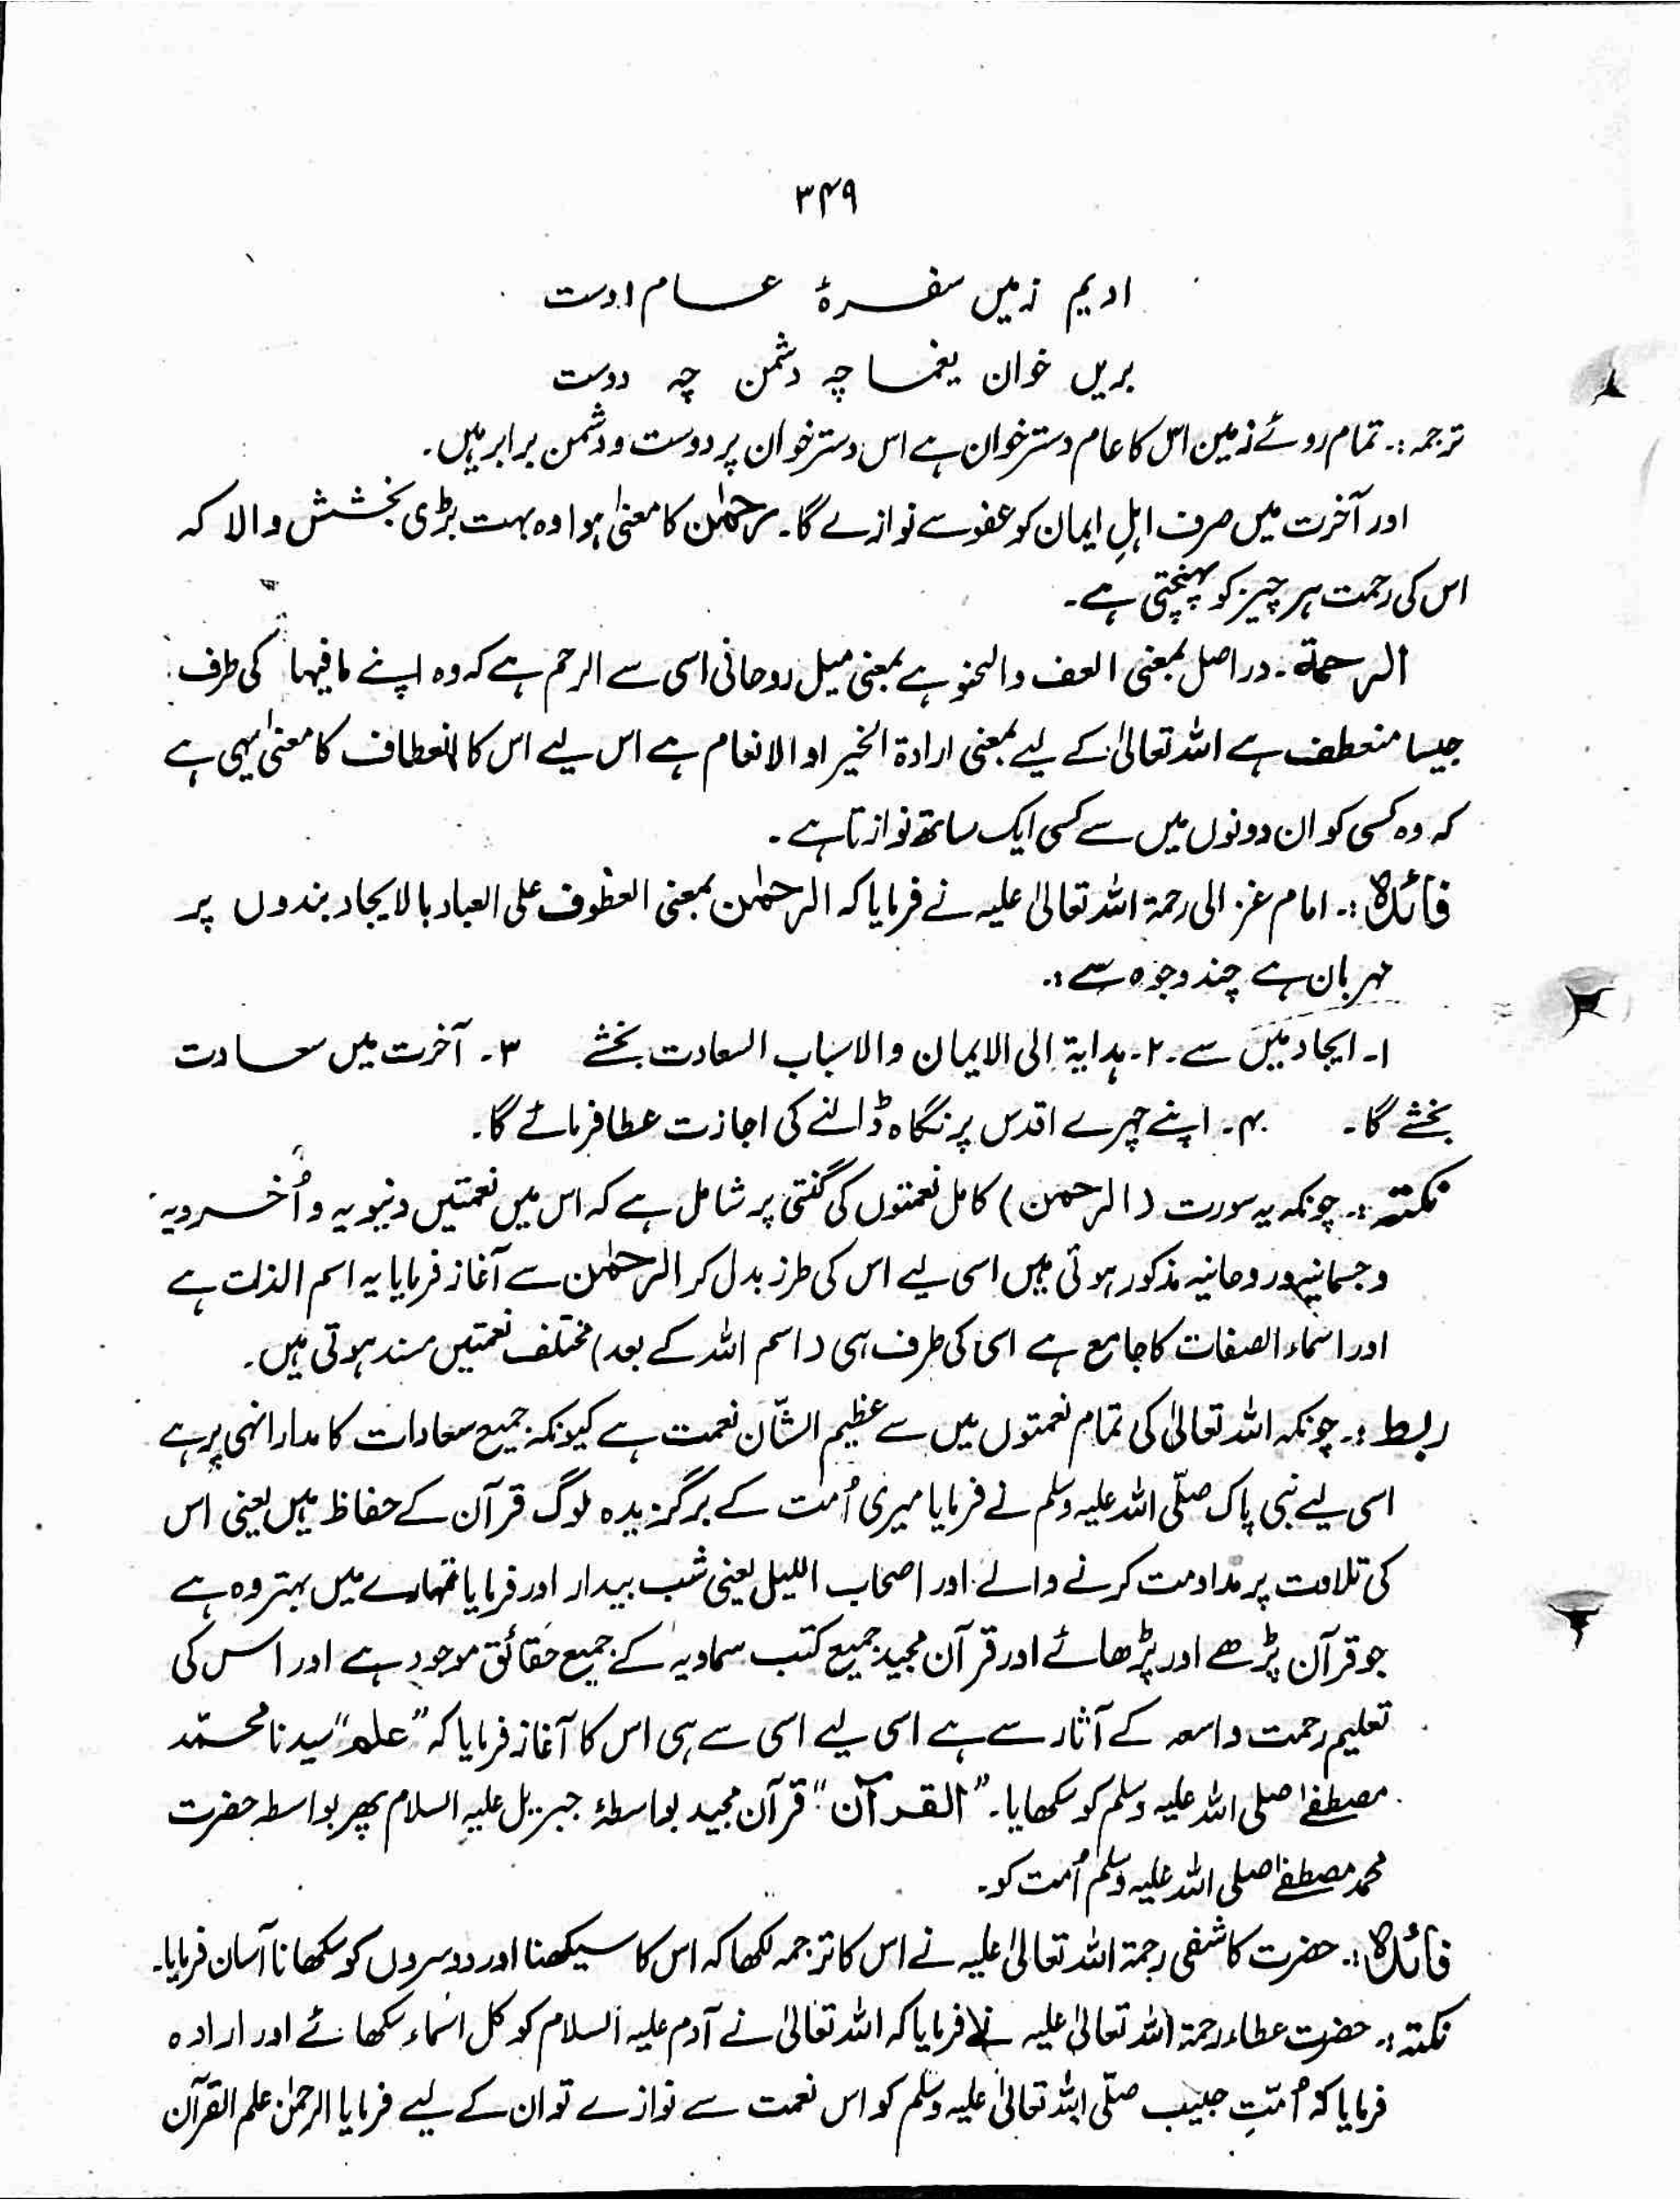 ۳۴۹
ادیم زمیں سفرۂ عام اوست
بریں خوان یغما چہ دشمن چہ دوست
ترجمہ :۔ تمام روئے زمین اس کا عام دسترخوان ہے اس دسترخوان پر دوست و دشمن برابر ہیں۔
اور آخرت میں صرف اہلِ ایمان کو عفو سے نوازے گا۔ رحمٰن کا معنیٰ ہوا وہ بہت بڑی بخشش والا کہ
اس کی رحمت ہر چیز کو پہنچتی ہے۔
الرحمۃ۔ دراصل بمعنی العف والحنو ہے بمعنی میل روحانی اسی سے الرحم ہے کہ وہ اپنے مافیہا کی طرف
جیسا منعطف ہے اللہ تعالیٰ کے لیے بمعنی ارادۃ الخیر او الانعام ہے اس لیے اس کا انعطاف کا معنیٰ یہی ہے
کہ وہ کسی کو ان دونوں میں سے کسی ایک ساتھ نوازتا ہے۔
فائدہ :۔ امام غزالی رحمۃ اللہ تعالیٰ علیہ نے فرمایا کہ الرحمٰن بمعنی العطوف علی العباد بالایجاد بندوں پر
مہربان ہے چند وجوہ سے :۔
۱۔ ایجاد میں سے ۔ ۲۔ ہدایۃ الی الایمان والاسباب السعادت بخشے ۳۔ آخرت میں سعادت
بخشے گا۔ ۴۔ اپنے چہرے اقدس پر نگاہ ڈالنے کی اجازت عطا فرمائے گا۔
نکتہ :۔ چونکہ یہ سورت (الرحمن) کامل نعمتوں کی گنتی پر شامل ہے کہ اس میں نعمتیں دنیویہ و اُخرویہ
و جسمانیہ و روحانیہ مذکور ہوئی ہیں اسی لیے اس کی طرز بدل کر الرحمٰن سے آغاز فرمایا یہ اسم الذات ہے
اور اسماء الصفات کا جامع ہے اسی کی طرف ہی (اسم اللہ کے بعد) مختلف نعمتیں مسند ہوتی ہیں۔
ربط :۔ چونکہ اللہ تعالیٰ کی تمام نعمتوں میں سے عظیم الشّان نعمت ہے کیونکہ جمیع سعادات کا مدار انہی پر ہے
اسی لیے نبی پاک صلّی اللہ علیہ وسلم نے فرمایا میری اُمت کے برگزیدہ لوگ قرآن کے حفاظ ہیں یعنی اس
کی تلاوت پر مداومت کرنے والے اور اصحاب اللیل یعنی شب بیدار اور فرمایا تمہارے میں بہتر وہ ہے
جو قرآن پڑھے اور پڑھائے اور قرآن مجید جمیع کتب سماویہ کے جمیع حقائق موجود ہے اور اس کی
تعلیم رحمت واسعہ کے آثار سے ہے اسی لیے اسی سے ہی اس کا آغاز فرمایا کہ ”علم“ سیدنا محمّد
مصطفےٰ صلی اللہ علیہ وسلم کو سکھایا۔ ”القرآن“ قرآن مجید بواسطۂ جبریل علیہ السلام پھر بواسطہ حضرت
محمد مصطفےٰ صلی اللہ علیہ وسلم اُمت کو۔
فائدہ :۔ حضرت کاشفی رحمۃ اللہ تعالیٰ علیہ نے اس کا ترجمہ لکھا کہ اس کا سیکھنا اور دوسروں کو سکھانا آسان فرمایا۔
نکتہ :۔ حضرت عطاء رحمۃ اللہ تعالیٰ علیہ نے فرمایا کہ اللہ تعالیٰ نے آدم علیہ السلام کو کل اسماء سکھائے اور ارادہ
فرمایا کہ اُمّتِ حبیب صلّی اللہ تعالیٰ علیہ وسلم کو اس نعمت سے نوازے تو ان کے لیے فرمایا الرحمٰن علم القرآن